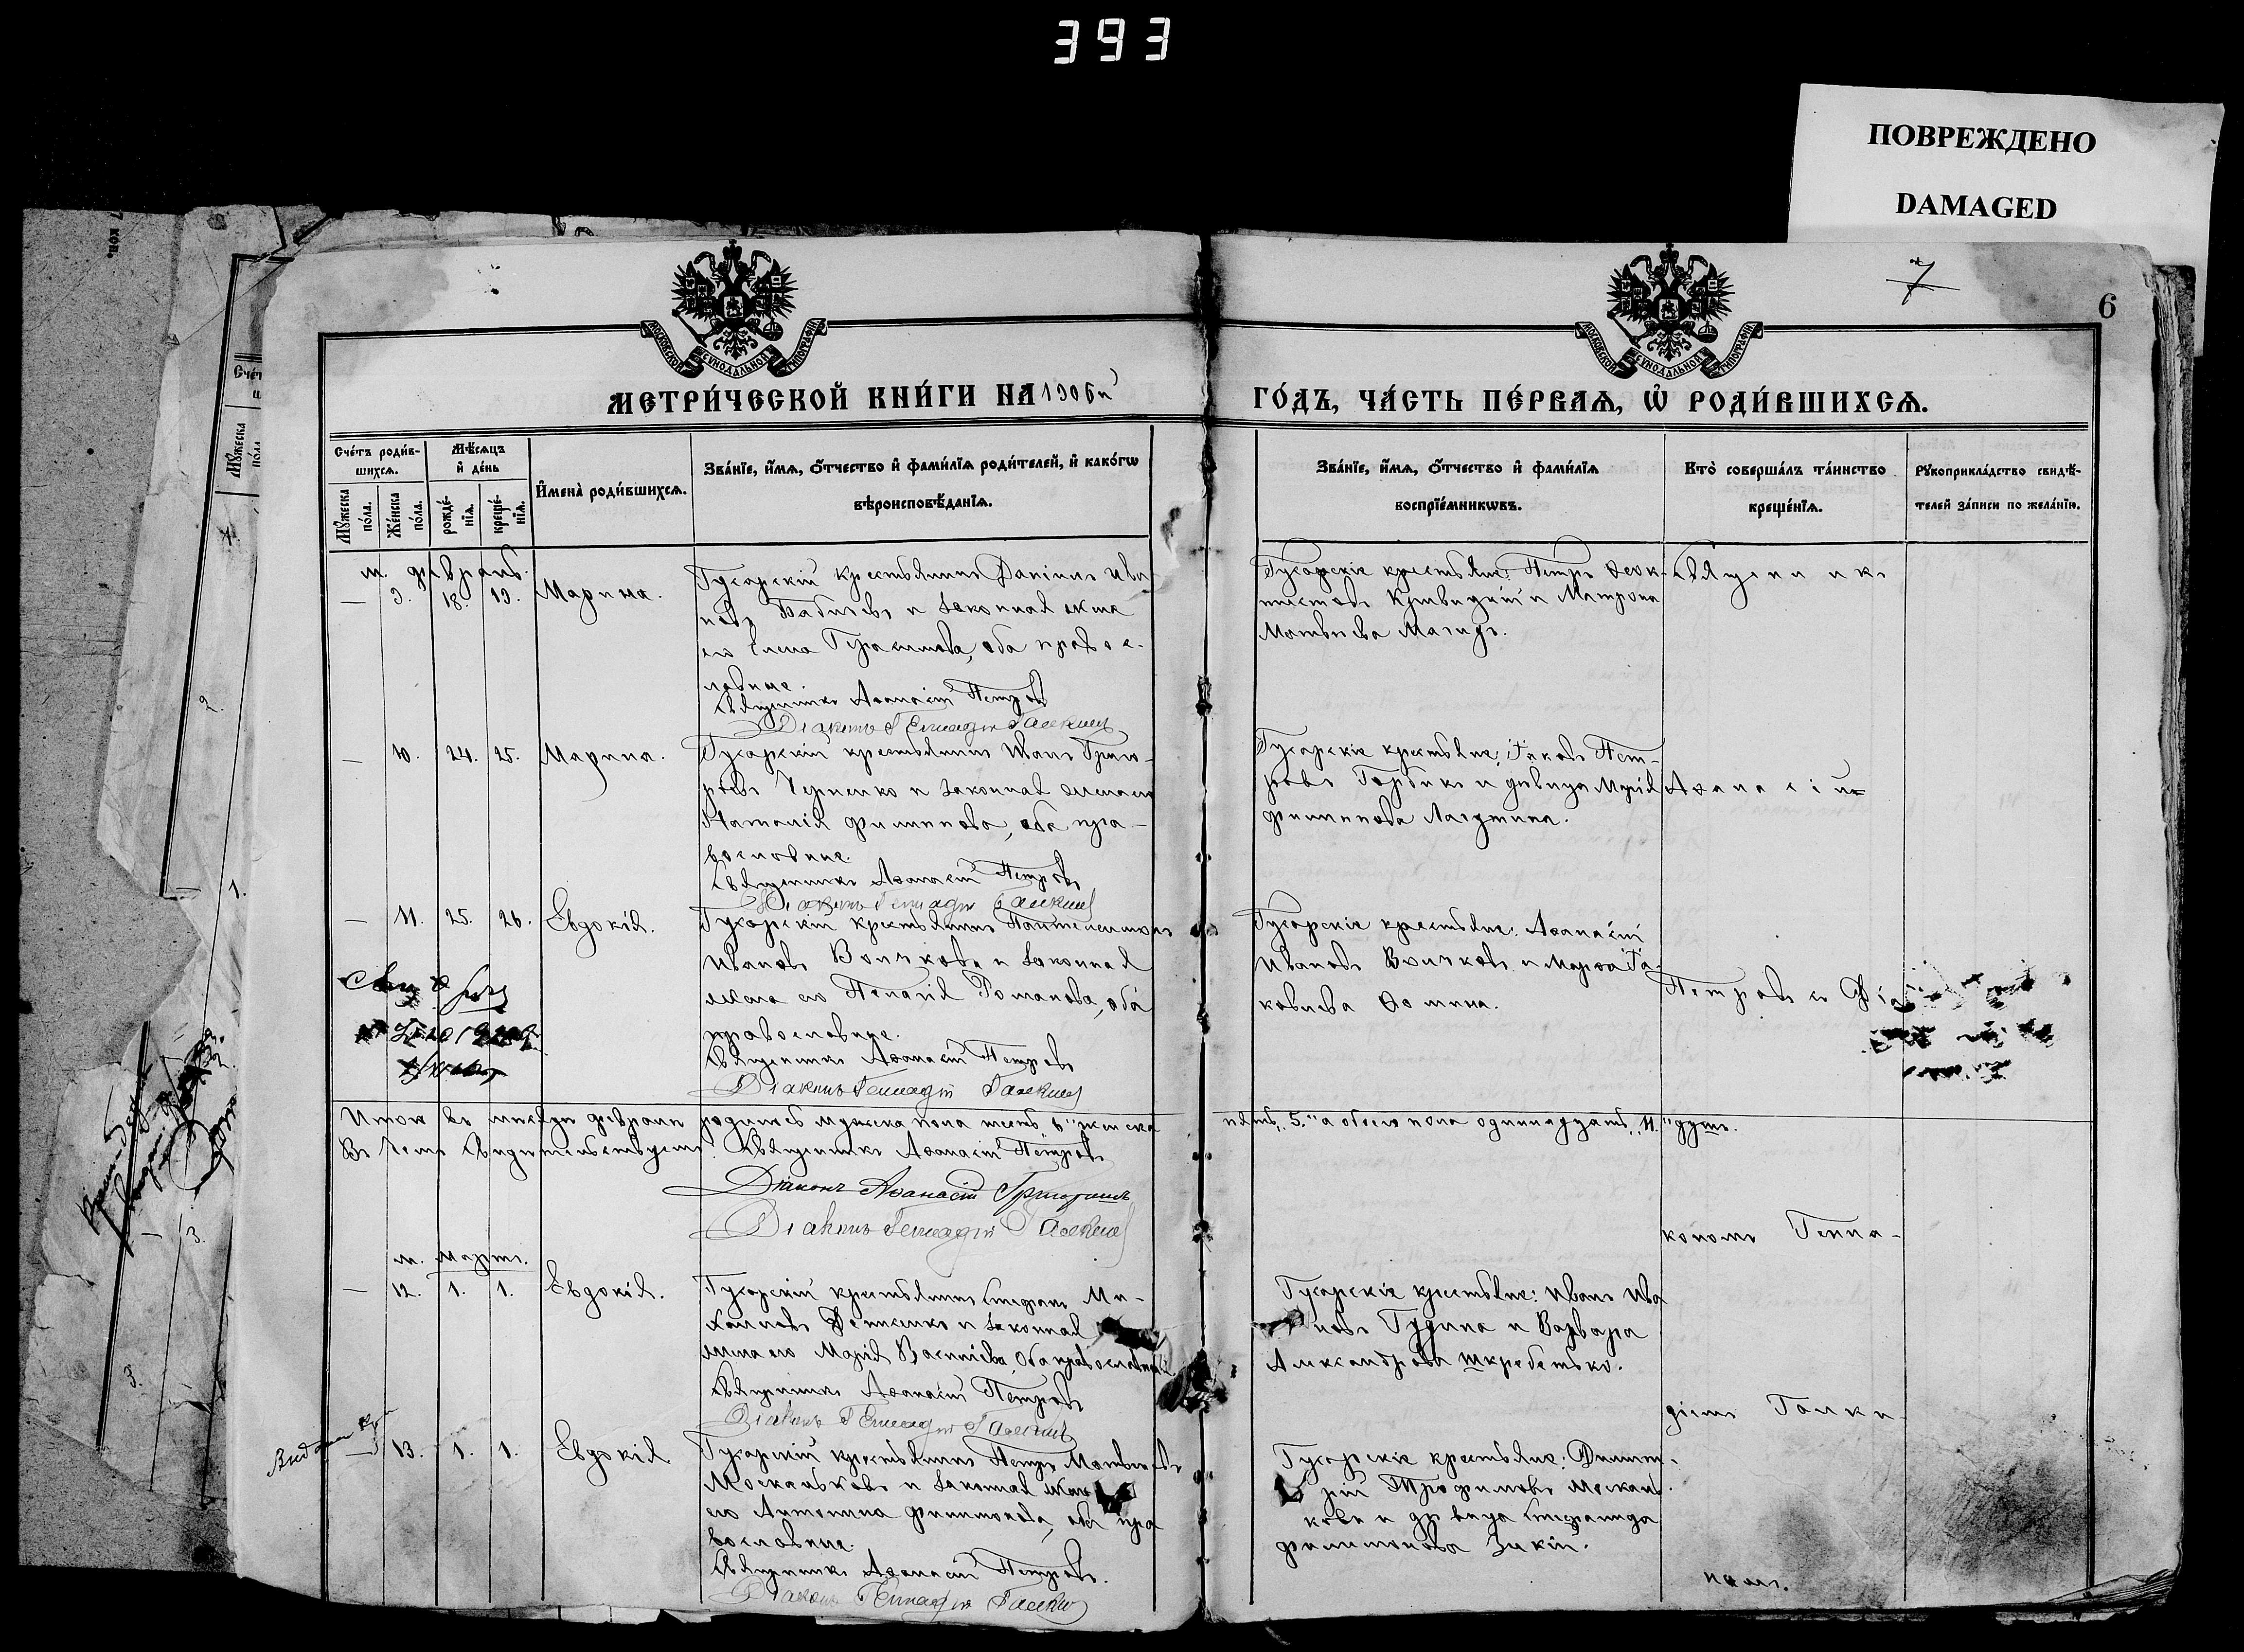 393
ПОВРЕЖДЕНО
DAMAGED
7
6
МОСКОВСКОЙ СѴНОДАЛЬНОЙ ТИПОГРАФІИ
МОСКОВСКОЙ СѴНОДАЛЬНОЙ ТИПОГРАФІИ
МЕТРИ́ЧЕСКОЙ КНИ́ГИ НА 1906й
ГО́ДЪ, ЧА́СТЬ ПЕ́РВАѦ, Ѡ҆ РОДИ́ВШИХСѦ.
Сче́тъ роди́в-
шихсѧ.
Мꙋ́жеска по́ла.
Же́нска по́ла.
Мѣ́сѧцъ
и҆ де́нь
рожде́-нїѧ.
креще́-нїѧ.
И҆мена̀ роди́вшихсѧ.
Зва́нїе, и҆́мѧ, ѻ҆́тчество и҆ фами́лїѧ роди́телей, и҆ како́гѡ
вѣроисповѣ́данїѧ.
Зва́нїе, и҆́мѧ, ѻ҆́тчество и҆ фами́лїѧ
воспрїе́мникѡвъ.
Кто̀ соверша́лъ та́инство
креще́нїѧ.
Рꙋкоприкла́дство свидѣ́-
телей за́писи по жела́нїю.
м. февраль.
— 9. 18. 19. Марина.
Гусарскій крестьянинъ Даніилъ Ива
новъ Бабичевъ и законная жена
его Елена Герасимова, оба правос-
лавные.
Священникъ Аѳанасій Петровъ
Діаконъ Геннадій Галкинъ
Гусарскіе крестьяне: Петръ Ѳеок-
тистовъ Кривицкій и Матрона
Матвѣева
Священникъ
— 10. 24. 25. Марина.
Гусарскій крестьянинъ Иванъ Григо-
рьевъ Черненко и законная жена его
Наталія Филиппова, оба пра-
вославные.
Священникъ Аѳанасій Петровъ
Діаконъ Геннадій Галкинъ
Гусарскіе крестьяне: Іаковъ Пет-
ровъ Горбикъ и дѣвица Марія
Филиппова Лагутина.
Аѳанасій
— 11. 25. 26. Евдокія.
Гусарскій крестьянинъ Пантелеимонъ
Ивановъ Волчковъ и законная
жена его Пелагія Романова, оба
православные.
Священникъ Аѳанасій Петровъ
Діаконъ Геннадій Галкинъ
Гусарскіе крестьяне: Аѳанасій
Ивановъ Волчковъ и Марѳа Іа-
ковлева Ѳомина.
Петровъ съ
Итого въ мѣсяцѣ февралѣ родилось мужеска пола шесть „6“ женска
пять „5“ а обоего пола одиннадцать „11“ душъ.
Въ чемъ свидѣтельствуемъ: Священникъ Аѳанасій Петровъ
Діаконъ Аѳанасій
Діаконъ Геннадій Галкинъ
кономъ Генна-
м. Мартъ.
— 12. 1. 1. Евдокія.
Гусарскій крестьянинъ Стефанъ Ми-
хаиловъ и законная
жена его Марія Василіева, оба православные
Священникъ Аѳанасій Петровъ
Діаконъ Геннадій Галкинъ
Гусарскіе крестьяне: Иванъ Ива
новъ Гудина и Варвара
Александрова Шкребетько.
діемъ Галки-
— 13. 1. 1. Евдокія
Гусарскій крестьянинъ Петръ Матвѣевъ
Москальковъ и законная жена
его Антонина Филимонова, оба пра
вославные.
Священникъ Аѳанасій Петровъ.
Діаконъ Геннадій Галкинъ
Гусарскіе крестьяне: Димит-
рій Трофимовъ Москаль-
ковъ и дѣвица Стефанида
Филимонова
нымъ.